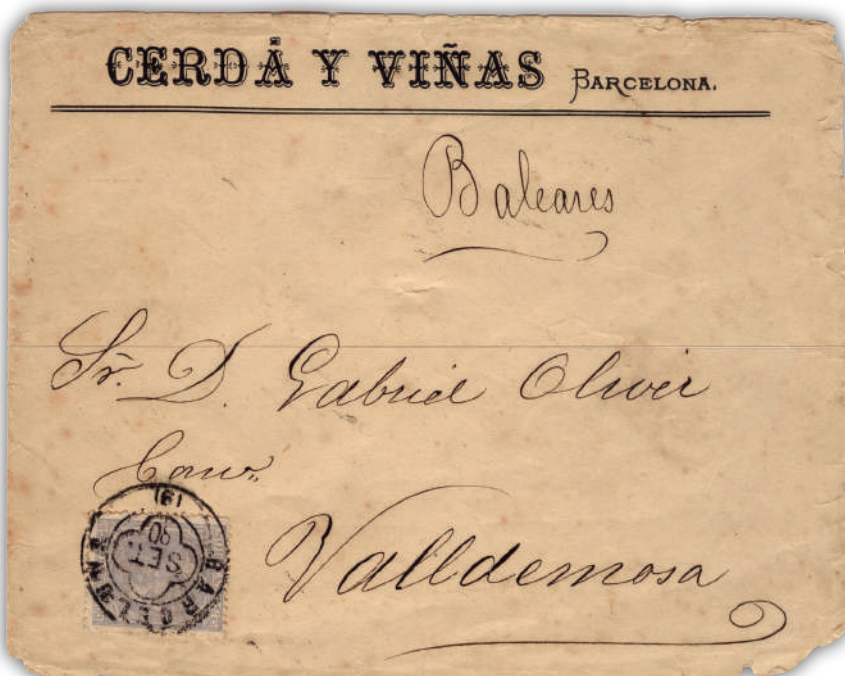 CERDÁ Y VIÑAS BARCELONA.
Baleares
Sr. D. Gabriel Oliver
Valldemosa
BARCELONA
SET.
90
(9)